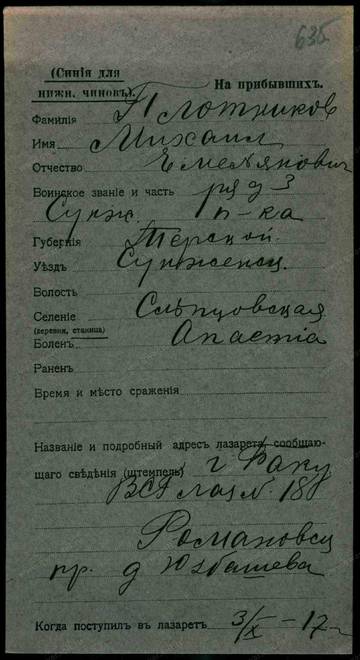 635
(Синія для
нижн. чиновъ).
На прибывшихъ.
Фамилія Плотников
Имя Михаил
Отчество Емельянович
Воинское званіе и часть ряд 3
Сунж. п-ка
Губернія Терской
Уѣздъ Сунженск.
Волость
Селеніе Слѣпцовская
(деревня, станица)
Боленъ
Раненъ
Время и мѣсто сраженія
Названіе и подробный адресъ лазарета, сообщаю-
щаго свѣдѣнія (штемпель) г Баку
ВСГ лаз №. 180
Романовск
пр. д Юзбашева
Когда поступилъ в лазаретъ 3/X - 17 г